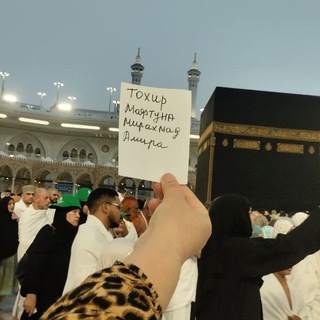 Тохир
Мафтуна
Мирахмад
Амира